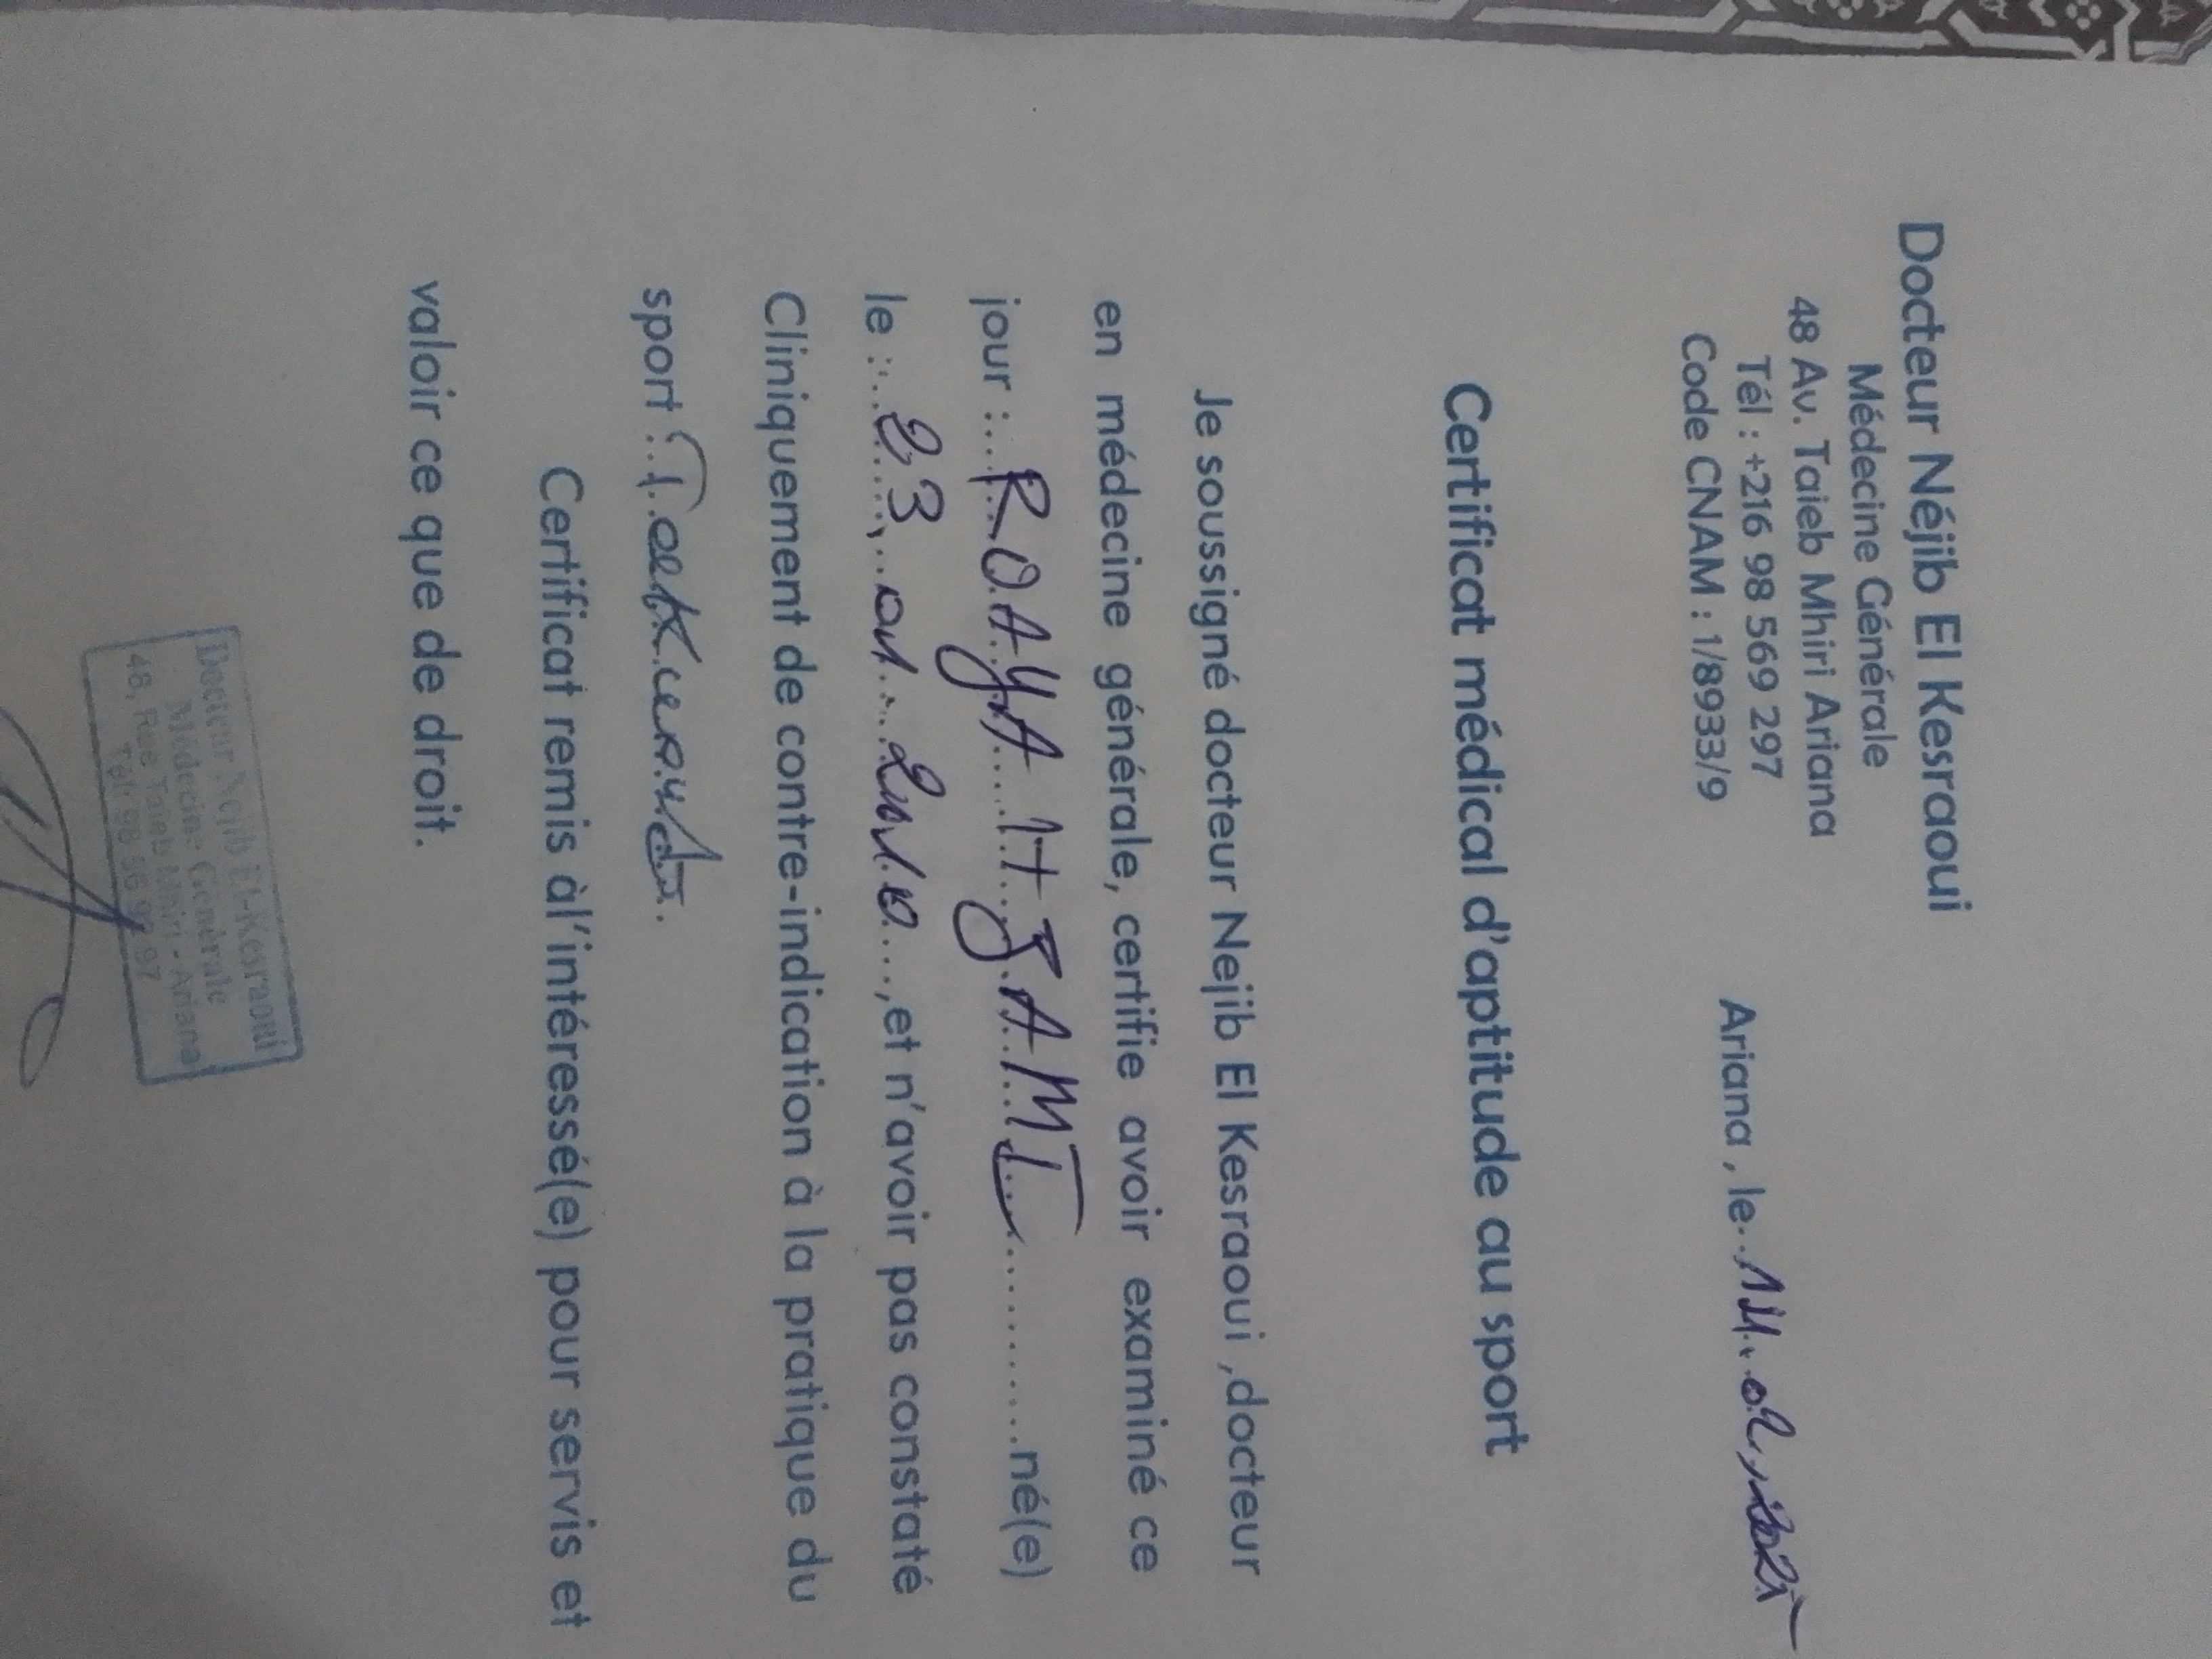 Docteur Néjib El Kesraoui
Médecine Générale
48 Av. Taieb Mhiri Ariana
Tél : +216 98 569 297
Code CNAM : 1/8933/9
Ariana , le
Certificat médical d'aptitude au sport
Je soussigné docteur Nejib El Kesraoui ,docteur
en médecine générale, certifie avoir examiné ce
jour : ROAYA JAMI né(e)
le : 23 01 2010 ,et n'avoir pas constaté
Cliniquement de contre-indication à la pratique du
sport : Taekwondo.
Certificat remis àl'intéressé(e) pour servis et
valoir ce que de droit.
Docteur Nejib El-Kesraoui
Médecine Générale
48, Rue Taieb Mhiri - Ariana
Tél: 98 56 92 97